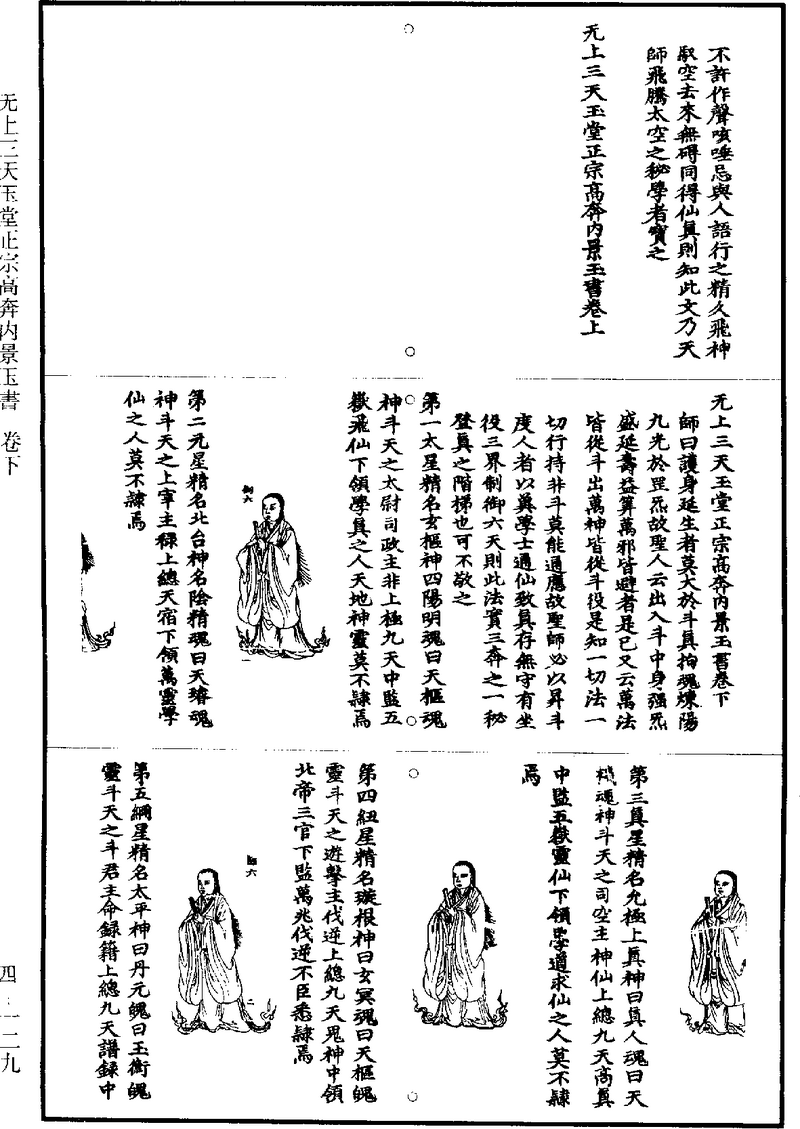 不許作聲咳唾忌與人語行之精久飛神
馭空去來無碍同得仙真則知此文乃天
師飛騰太空之秘學者寶之
无上三天玉堂正宗高奔內景玉書卷上
无上三天玉堂正宗高奔內景玉書卷下
師曰護身延生者莫大於斗真拘魂煉陽
九光於罡炁故聖人云出入斗中身强炁
盛延壽益算萬邪皆避者是已又云萬法
皆從斗出萬神皆從斗役是知一切法一
切行持非斗莫能通應故聖師必以昇斗
度人者以冀學士通仙致真存無守有坐
役三界制御六天則此法實三奔之一秘
登真之階梯也可不敬之
第一太星精名玄樞神四陽明魂曰天樞魂
神斗天之太尉司政主非上極九天中監五
嶽飛仙下領學真之人天地神靈莫不隸焉
第二元星精名北台神名陰精魂曰天璿魂
神斗天之上宰主祿上總天宿下領萬靈學
仙之人莫不隸焉
第三真星精名九極上真神曰真人魂曰天
機魂神斗天之司空主神仙上總九天高真
中監五嶽靈仙下領學道求仙之人莫不隸
焉
第四紐星精名璇根神曰玄冥魂曰天樞魄
靈斗天之遊擊主伐逆上總九天鬼神中領
北帝三官下監萬兆伐逆不臣悉隸焉
第五綱星精名太平神曰丹元魄曰玉衡魄
靈斗天之斗君主命録籍上總九天譜録中
无上三天玉堂正宗高奔內景玉書 卷下
四·一二九